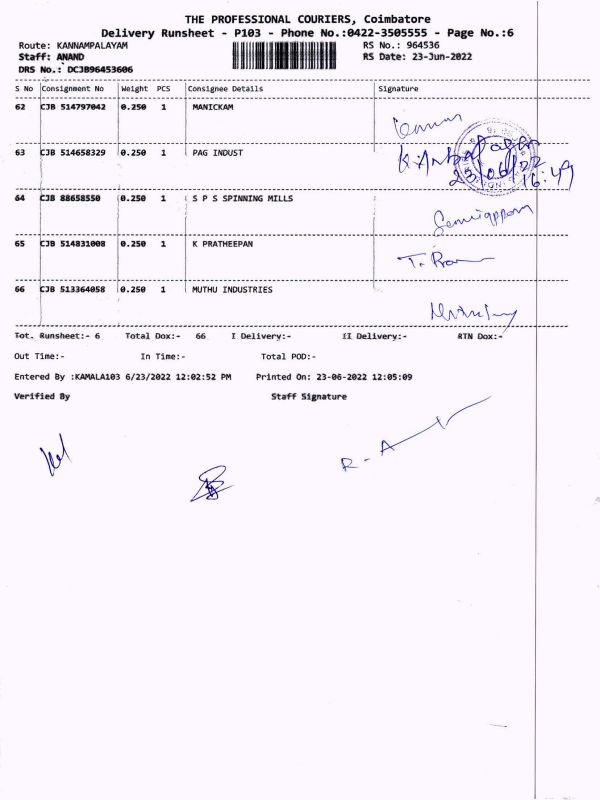 THE PROFESSIONAL COURIERS, Coimbatore
Delivery Runsheet - P103 - Phone No.:0422-3505555 - Page No.:6
Route: KANNAMPALAYAM RS No.: 964536
Staff: ANAND RS Date: 23-Jun-2022
DRS No.: DCJB96453606
S No Consignment No Weight PCS Consignee Details Signature
62 CJB 514797042 0.250 1 MANICKAM
63 CJB 514658329 0.250 1 PAG INDUST
23/06/22
16:49
64 CJB 88658550 0.250 1 S P S SPINNING MILLS
65 CJB 514831008 0.250 1 K PRATHEEPAN
66 CJB 513364058 0.250 1 MUTHU INDUSTRIES
Tot. Runsheet:- 6 Total Dox:- 66 I Delivery:- II Delivery:- RTN Dox:-
Out Time:- In Time:- Total POD:-
Entered By :KAMALA103 6/23/2022 12:02:52 PM Printed On: 23-06-2022 12:05:09
Verified By Staff Signature